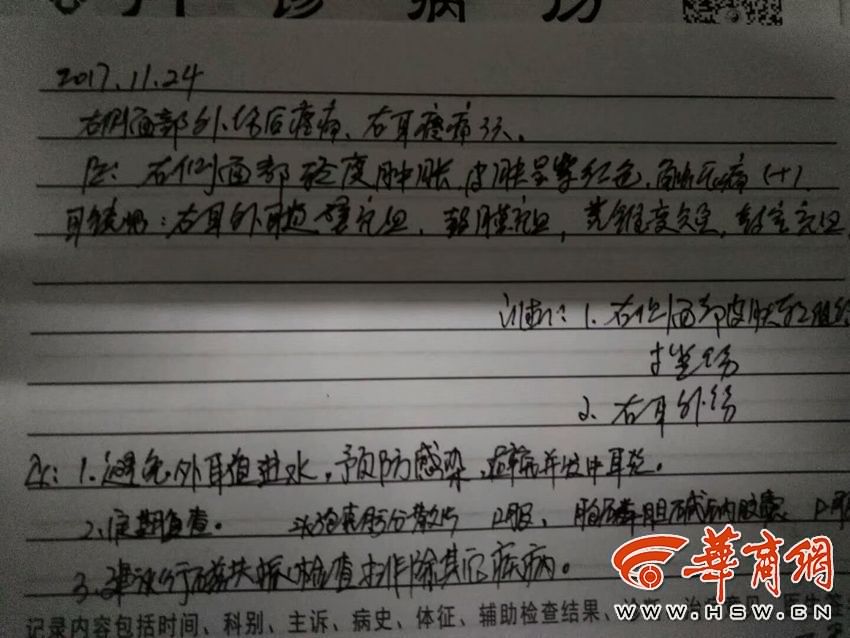 门诊病历
2017.11.24
右侧面部外伤后疼痛、右耳疼痛3天。
右侧面部轻度肿胀,皮肤呈紫红色,压痛(+)
耳镜:右耳外耳道壁充血,鼓膜充血,光锥
诊断:1.右侧面部皮肤软组织
挫伤
2.右耳外伤
1.避免外耳道进水,预防感染,并发中耳炎。
2.定期复查。 分散片 口服、内胶囊 口服
3.建议行磁共振检查排除其它疾病。
记录内容包括时间、科别、主诉、病史、体征、辅助检查结果、诊断、治疗意见
华商网
WWW.HSW.CN